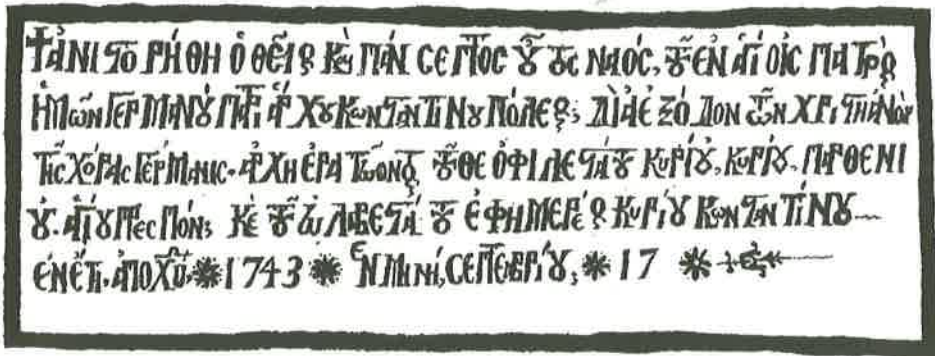 †ἈΝΙΣΤΟΡΉΘΗ Ὁ ΘΕῖΟΣ Κὲ ΠΆΝ ΣΕΠΤΟΣ ΟΥ̃ΤΟΣ ΝΑΌΣ, ΤΟΥ̃ ἘΝ ἉΓΊΟΙΣ ΠΑΤΡῸΣ
ἩΜῶΝ ΓΕΡΜΑΝΟΎ ΠΑΤΡΙΆΡΧΟΥ ΚΩΝΣΤΑΝΤΙΝΟΥΠΌΛΕΟΣ; ΔΙᾺ ἘΞΌΔΟΝ ΤῶΝ ΧΡΙΣΤΗΆΝΩΝ
ΤΗΣ ΧΌΡΑΣ ΓΕΡΜΑΝΙΣ. ἈΡΧΗΕΡΑΤΕΎΟΝΤΟΣ ΤΟΥ̃ ΘΕΟΦΙΛΕΣΤΆΤΟΥ ΚΥΡΊΟΥ, ΚΥΡΊΟΥ, ΠΑΡΘΕΝΙ
ΟΥ. ἉΓΊΟΥ ΠΡΕΣΠΌΝ; ΚΈ ΤΟΥ̃ ΕΥΛΑΒΕΣΤΆΤΟΥ ἘΦΗΜΕΡΈΟΣ ΚΥΡΊΟΥ ΚΩΝΣΤΑΝΤΊΝΟΥ
ἘΝ ἜΤΙ. ἈΠΟ ΧΥ̃. * 1743 * ἘΝ ΜΙΝΊ, ΣΕΠΤΕΒΡΊΟΥ; * 17 *